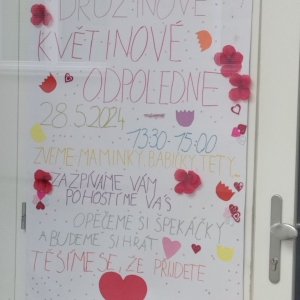 DRUŽINOVÉ
KVĚTINOVÉ
ODPOLEDNE
28.5.2024
13:30-15:00
ZVEME: MAMINKY, BABIČKY, TETY...
ZAZPÍVÁME VÁM
POHOSTÍME VÁS
OPEČEME SI ŠPEKÁČKY
A BUDEME SI HRÁT
TĚŠÍME SE, ŽE PŘIJDETE